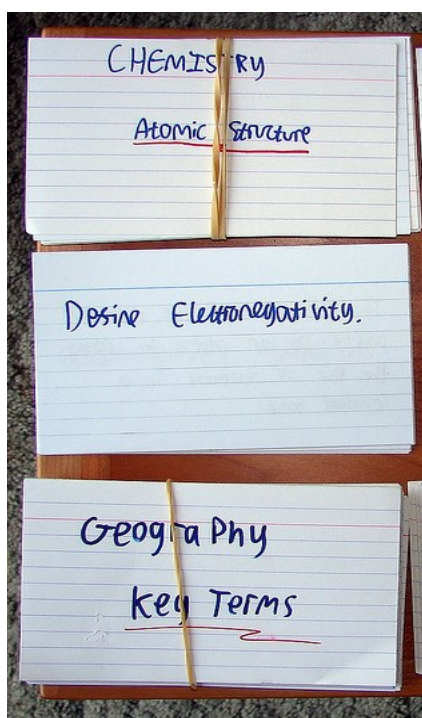 CHEMISTRY
Atomic Structure
Define Electronegativity.
Geography
Key Terms